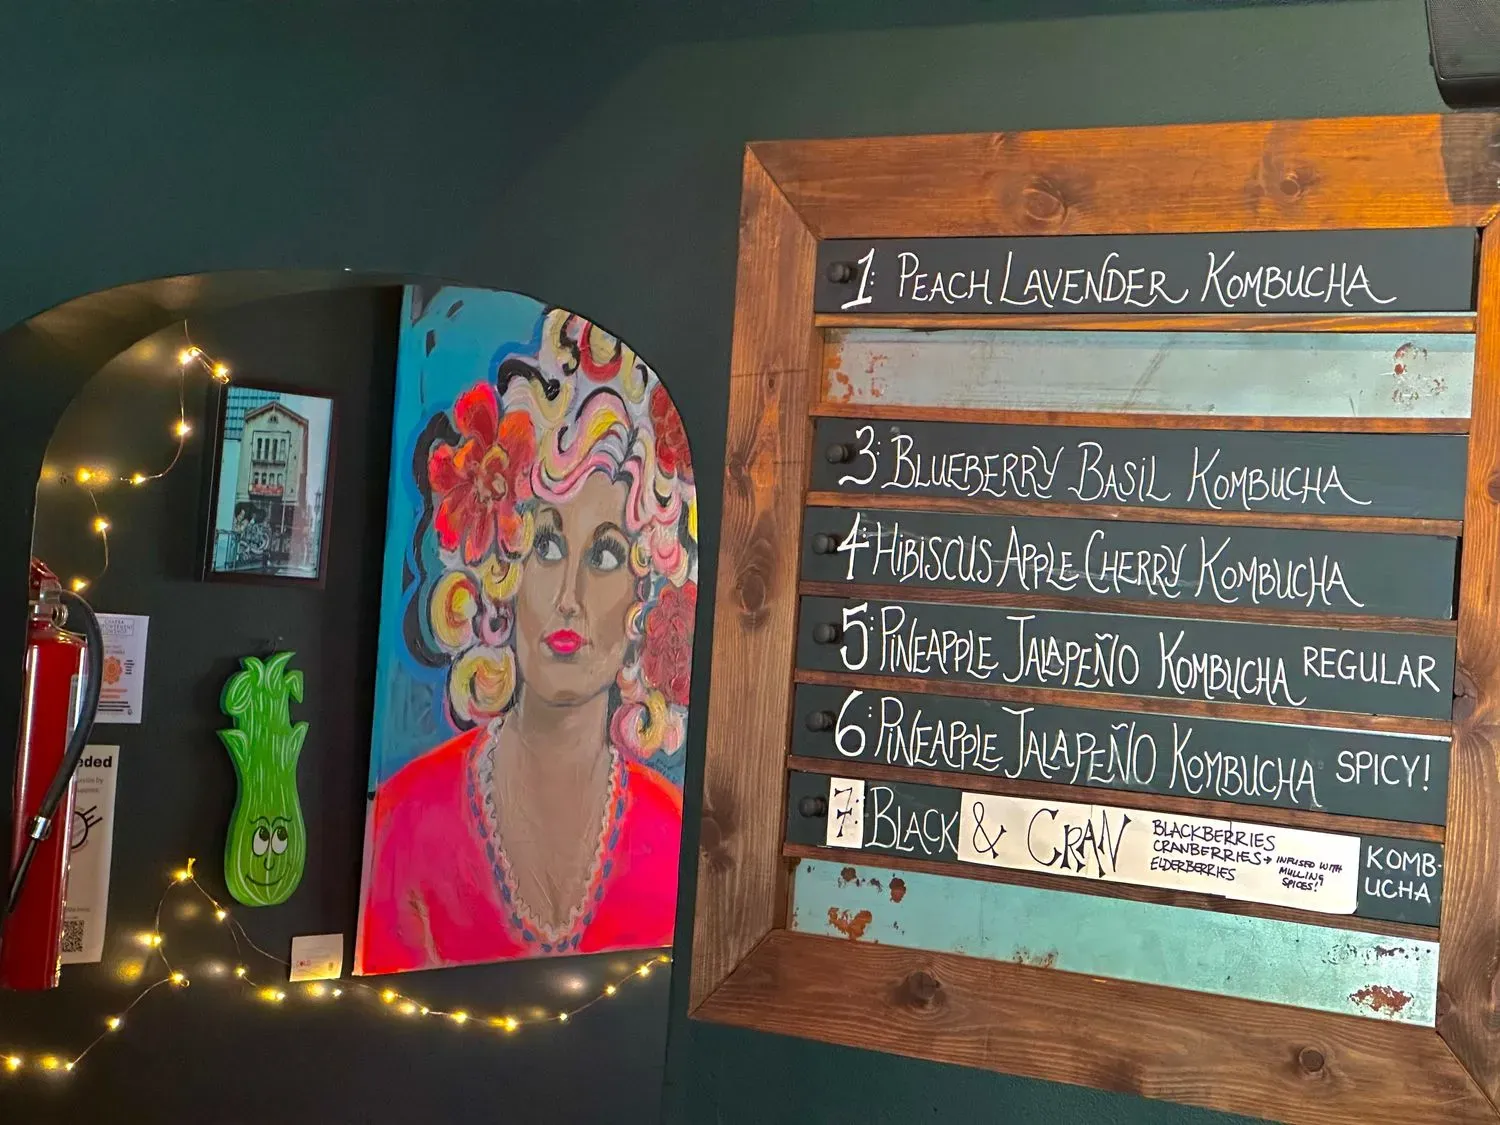 1: PEACH LAVENDER KOMBUCHA
3: BLUEBERRY BASIL KOMBUCHA
4: HIBISCUS APPLE CHERRY KOMBUCHA
5: PINEAPPLE JALAPEÑO KOMBUCHA REGULAR
6: PINEAPPLE JALAPEÑO KOMBUCHA SPICY!
7: BLACK & CRAN
BLACKBERRIES
CRANBERRIES → INFUSED WITH
MULLING
SPICES!
ELDERBERRIES
KOMB-
UCHA
eded